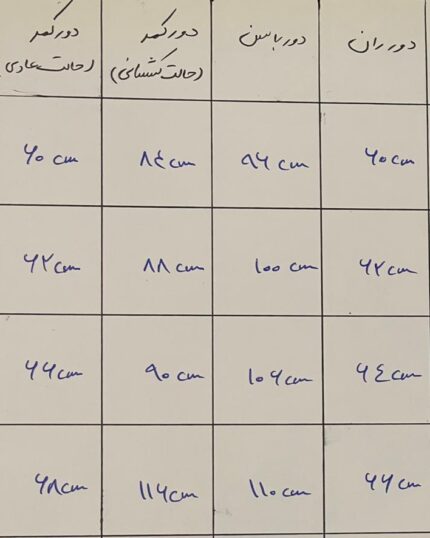 دور ران | دور باسن | دور کمر (حالت کشسانی) | دور کمر (حالت عادی)
۶۰ cm | ۹۶ cm | ۸٤ cm | ۶۰ cm
۶۲ cm | ۱۰۰ cm | ۸۸ cm | ۶۲ cm
۶٤ cm | ۱۰۶ cm | ۹۰ cm | ۶۶ cm
۶۶ cm | ۱۱۰ cm | ۱۱۶ cm | ۶۸ cm